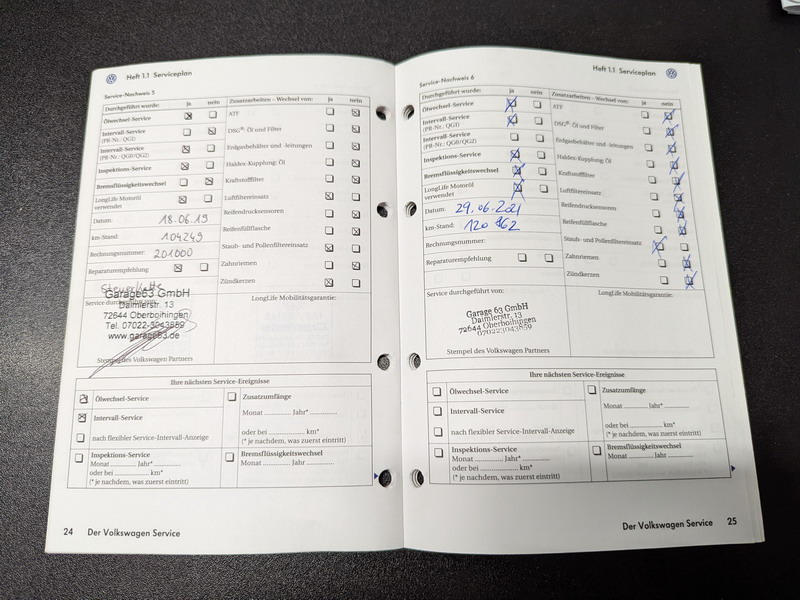 Heft 1.1 Serviceplan
Service-Nachweis 5
Durchgeführt wurde: ja nein
Ölwechsel-Service
Intervall-Service
(PR-Nr.: QG1)
Intervall-Service
(PR-Nr.: QG0/QG2)
Inspektions-Service
Bremsflüssigkeitswechsel
LongLife Motoröl
verwendet
Datum: 18.06.19
km-Stand: 104249
Rechnungsnummer: 201000
Reparaturempfehlung
Steuerkette
Zusatzarbeiten – Wechsel von: ja nein
ATF
DSG®: Öl und Filter
Erdgasbehälter und -leitungen
Haldex-Kupplung: Öl
Kraftstofffilter
Luftfiltereinsatz
Reifendrucksensoren
Reifenfüllflasche
Staub- und Pollenfiltereinsatz
Zahnriemen
Zündkerzen
Service durchgeführt von:
Garage63 GmbH
Daimlerstr. 13
72644 Oberboihingen
Tel. 07022-3043859
www.garage63.de
Stempel des Volkswagen Partners
LongLife Mobilitätsgarantie:
Ihre nächsten Service-Ereignisse
Ölwechsel-Service
Intervall-Service
nach flexibler Service-Intervall-Anzeige
Zusatzumfänge
Monat ............ Jahr* ..............
oder bei .................... km*
(* je nachdem, was zuerst eintritt)
Inspektions-Service
Monat .............. Jahr* ..............
oder bei .................... km*
(* je nachdem, was zuerst eintritt)
Bremsflüssigkeitswechsel
Monat ............ Jahr ..............
24 Der Volkswagen Service
Heft 1.1 Serviceplan
Service-Nachweis 6
Durchgeführt wurde: ja nein
Ölwechsel-Service
Intervall-Service
(PR-Nr.: QG1)
Intervall-Service
(PR-Nr.: QG0/QG2)
Inspektions-Service
Bremsflüssigkeitswechsel
LongLife Motoröl
verwendet
Datum: 29.06.2021
km-Stand: 120 862
Rechnungsnummer:
Reparaturempfehlung
Zusatzarbeiten – Wechsel von: ja nein
ATF
DSG®: Öl und Filter
Erdgasbehälter und -leitungen
Haldex-Kupplung: Öl
Kraftstofffilter
Luftfiltereinsatz
Reifendrucksensoren
Reifenfüllflasche
Staub- und Pollenfiltereinsatz
Zahnriemen
Zündkerzen
Service durchgeführt von:
Garage 63 GmbH
Daimlerstr. 13
72644 Oberboihingen
070223043859
Stempel des Volkswagen Partners
LongLife Mobilitätsgarantie:
Ihre nächsten Service-Ereignisse
Ölwechsel-Service
Intervall-Service
nach flexibler Service-Intervall-Anzeige
Zusatzumfänge
Monat ............ Jahr* ..............
oder bei .................... km*
(* je nachdem, was zuerst eintritt)
Inspektions-Service
Monat .............. Jahr* ..............
oder bei .................... km*
(* je nachdem, was zuerst eintritt)
Bremsflüssigkeitswechsel
Monat ............ Jahr ..............
Der Volkswagen Service 25